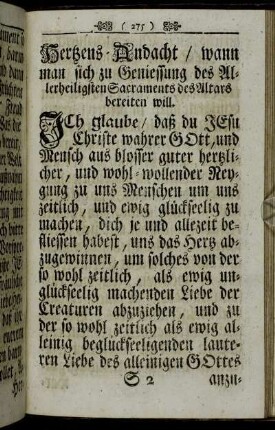 ( 275 )
Hertzens-Andacht / wann
man sich zu Geniessung des Al-
lerheiligsten Sacraments des Altars
bereiten will.
ICh glaube / daß du JEsu
Christe wahrer GOtt, und
Mensch aus blosser guter hertzli-
cher, und wohl-wollender Ney-
gung zu uns Menschen um uns
zeitlich, und ewig glückseelig zu
machen, dich je und allezeit be-
fliessen habest, uns das Hertz ab-
zugewinnen, um solches von der
so wohl zeitlich, als ewig un-
glückseelig machenden Liebe der
Creaturen abzuziehen, und zu
der so wohl zeitlich als ewig al-
leinig beglückseeligenden laute-
ren Liebe des alleinigen GOttes
S 2 anzu-